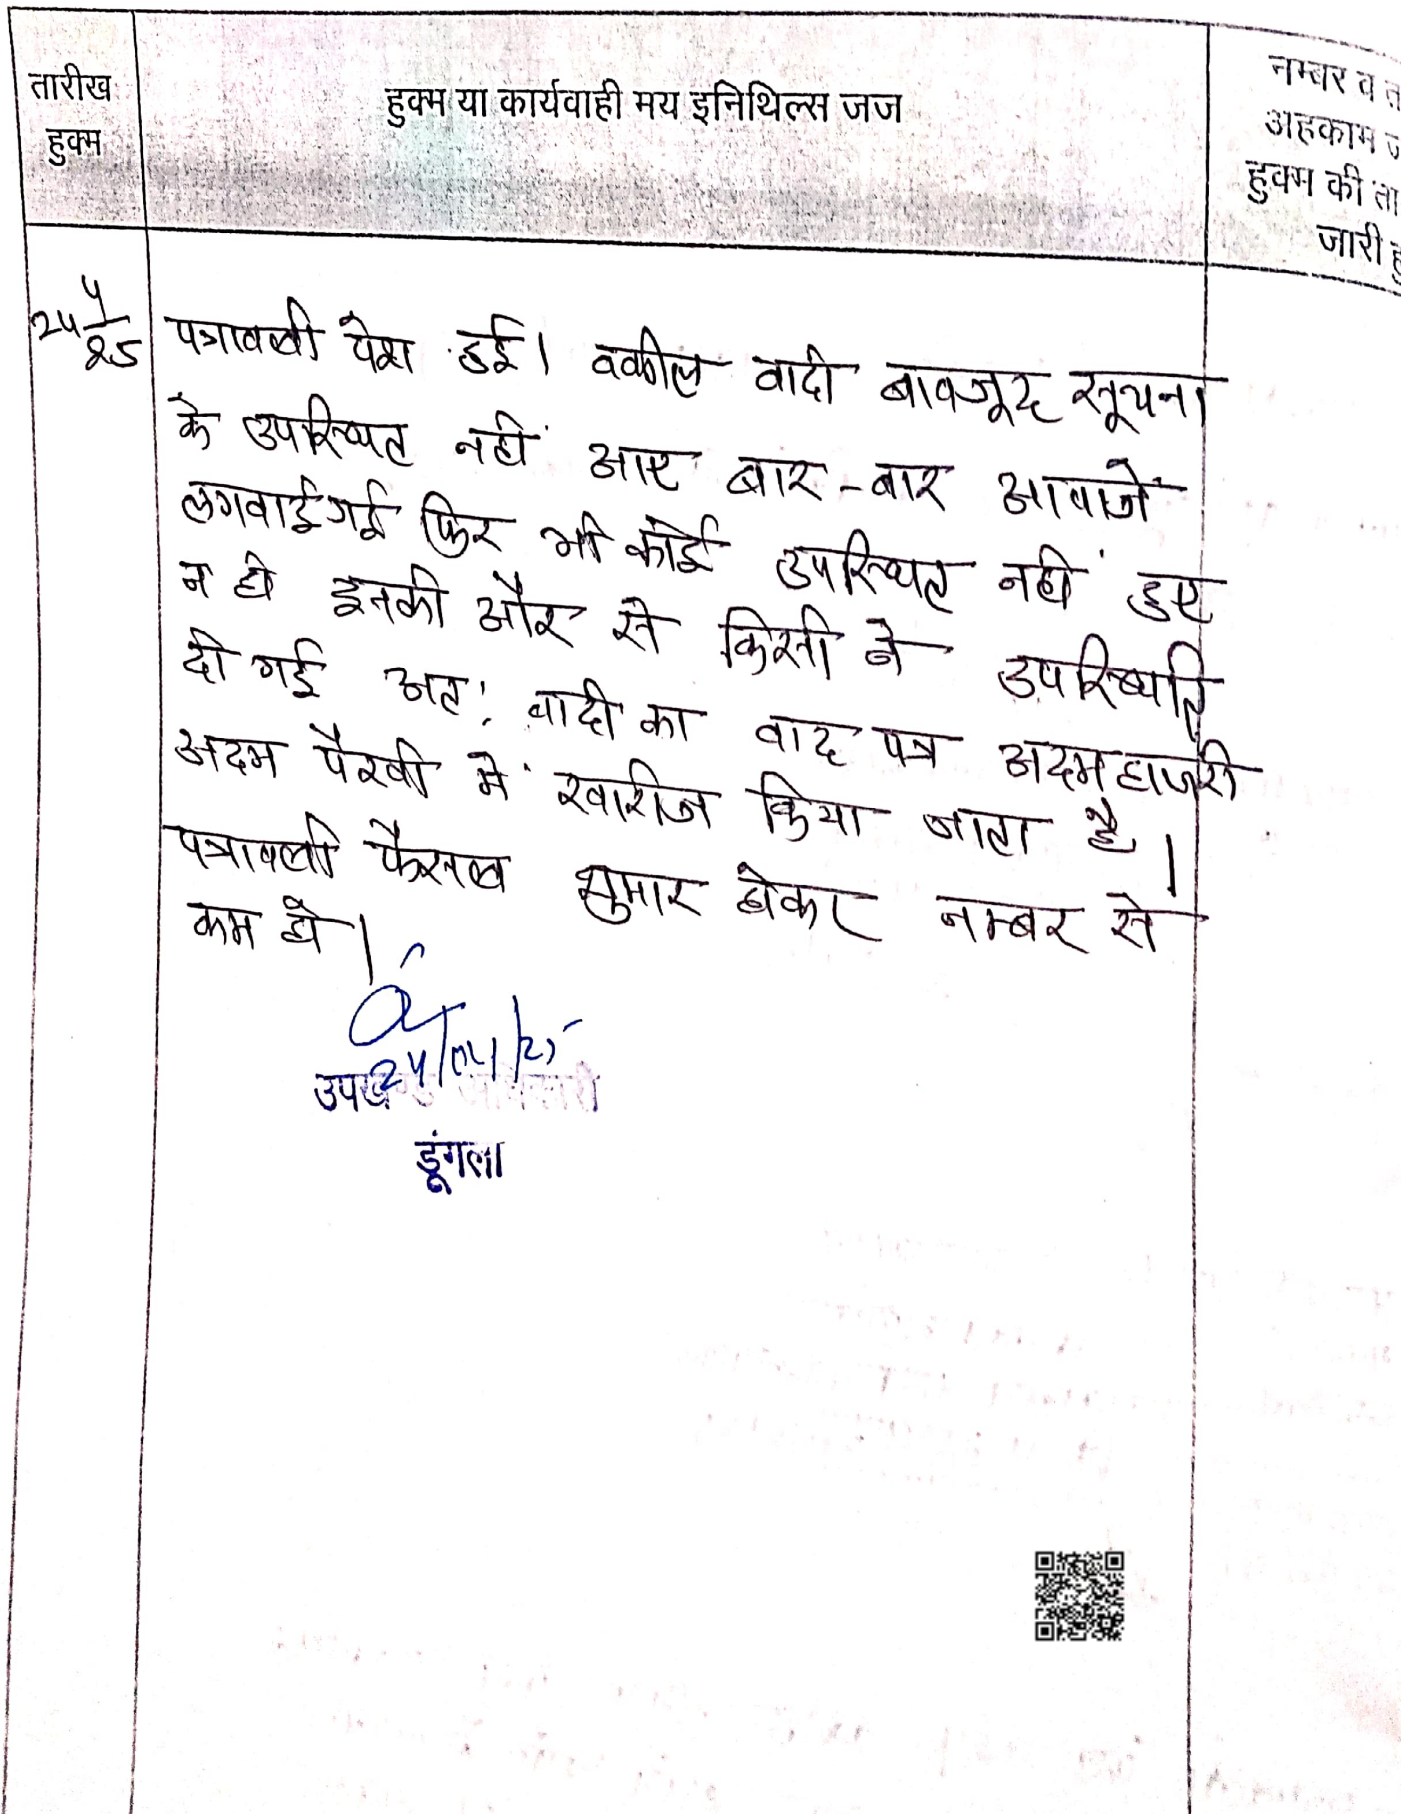 तारीख
हुक्म
हुक्म या कार्यवाही मय इनिथिल्स जज
नम्बर व त
अहकाम ज
हुक्म की ता
जारी हु
24/4/25
पत्रावली पेश हुई। वकील वादी बावजूद सूचना
के उपस्थित नहीं आए बार-बार आवाजें
लगवाई गई फिर भी कोई उपस्थित नहीं हुए
न ही इनकी और से किसी ने उपस्थिति
दी गई अत: वादी का वाद पत्र अदम हाजरी
अदम पैरवी में खारीज किया जाता है।
पत्रावली फैसल शुमार होकर नम्बर से
कम हो।
24/04/25
उपखण्ड अधिकारी
डूंगला